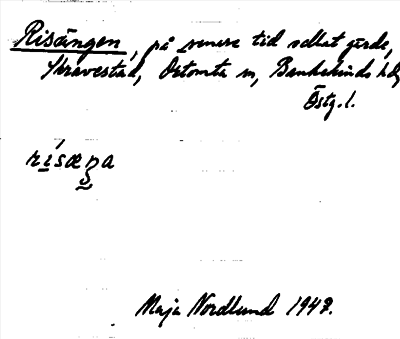 Risängen, på senare tid selbat gärde,
Skravestad, Örtomta sn, Bankekinds hd,
Östg. l.
rísæŋa
Maja Nordlund 1947.